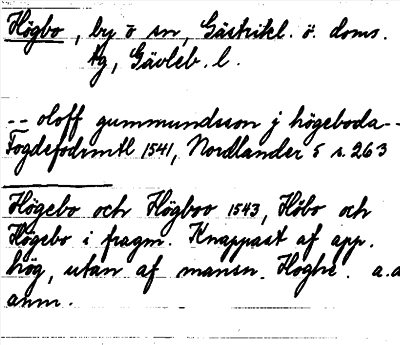 Högbo, by o sn, Gästrikl. ö. doms.
tg, Gävleb. l.
-- oloff gummundsson j högeboda --
Fogdefodrmtl 1541, Nordlander 5 s. 263
Högebo och Högboo 1543, Höbo och
Högebo i fragm. Knappast af app.
hög, utan af mansn. Hoghe. a.a
anm.